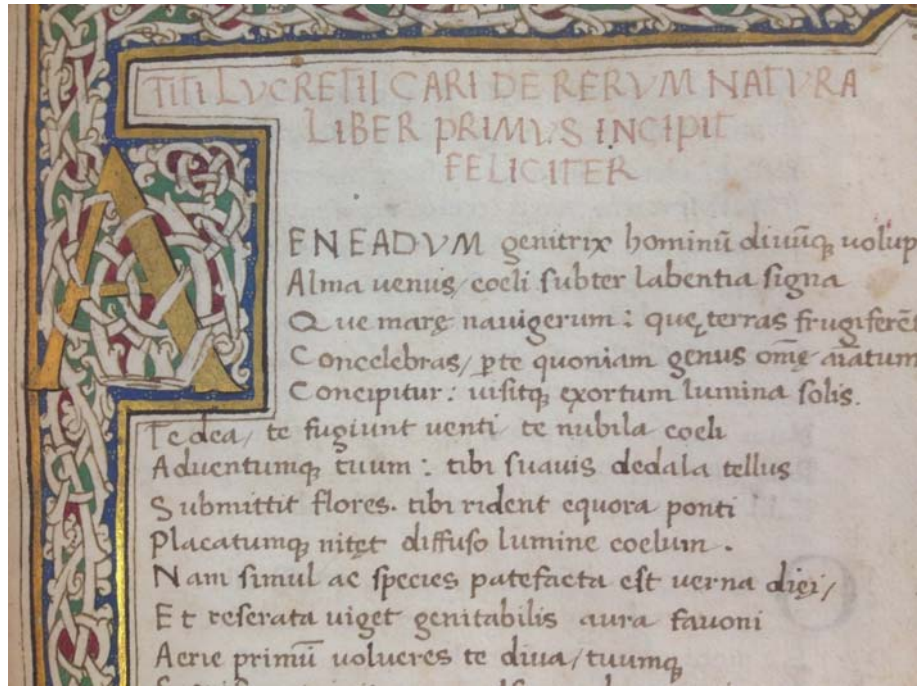 TITI LVCRETII CARI DE RERVM NATVRA
LIBER PRIMVS INCIPIT
FELICITER
AENEADVM genitrix hominū diuūq; uolup
Alma uenus/ coeli subter labentia signa
Que marę nauigerum: quę terras frugiferē
Concelebras/ ꝑte quoniam genus omę aīatum
Concipitur: uisitq; exortum lumina solis.
Te dea/ te fugiunt uenti te nubila coeli
Aduentumq; tuum: tibi suauis dedala tellus
Submittit flores. tibi rident equora ponti
Placatumq; nitęt diffuso lumine coelum.
Nam simul ac species patefacta est uerna dięi/
Et reserata uiget genitabilis aura fauoni
Aerie primū uolucres te diua/ tuumq;